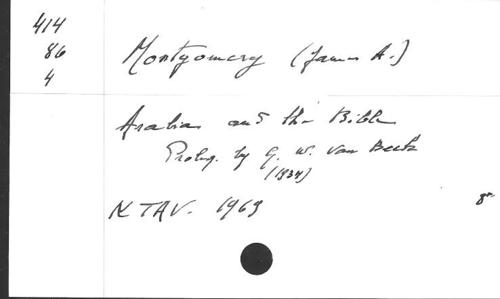 414
86
4
Montgomery (James A.)
Arabia and the Bible
Proleg. by G. W. Van Beek
(1934)
KTAV. 1969
8°